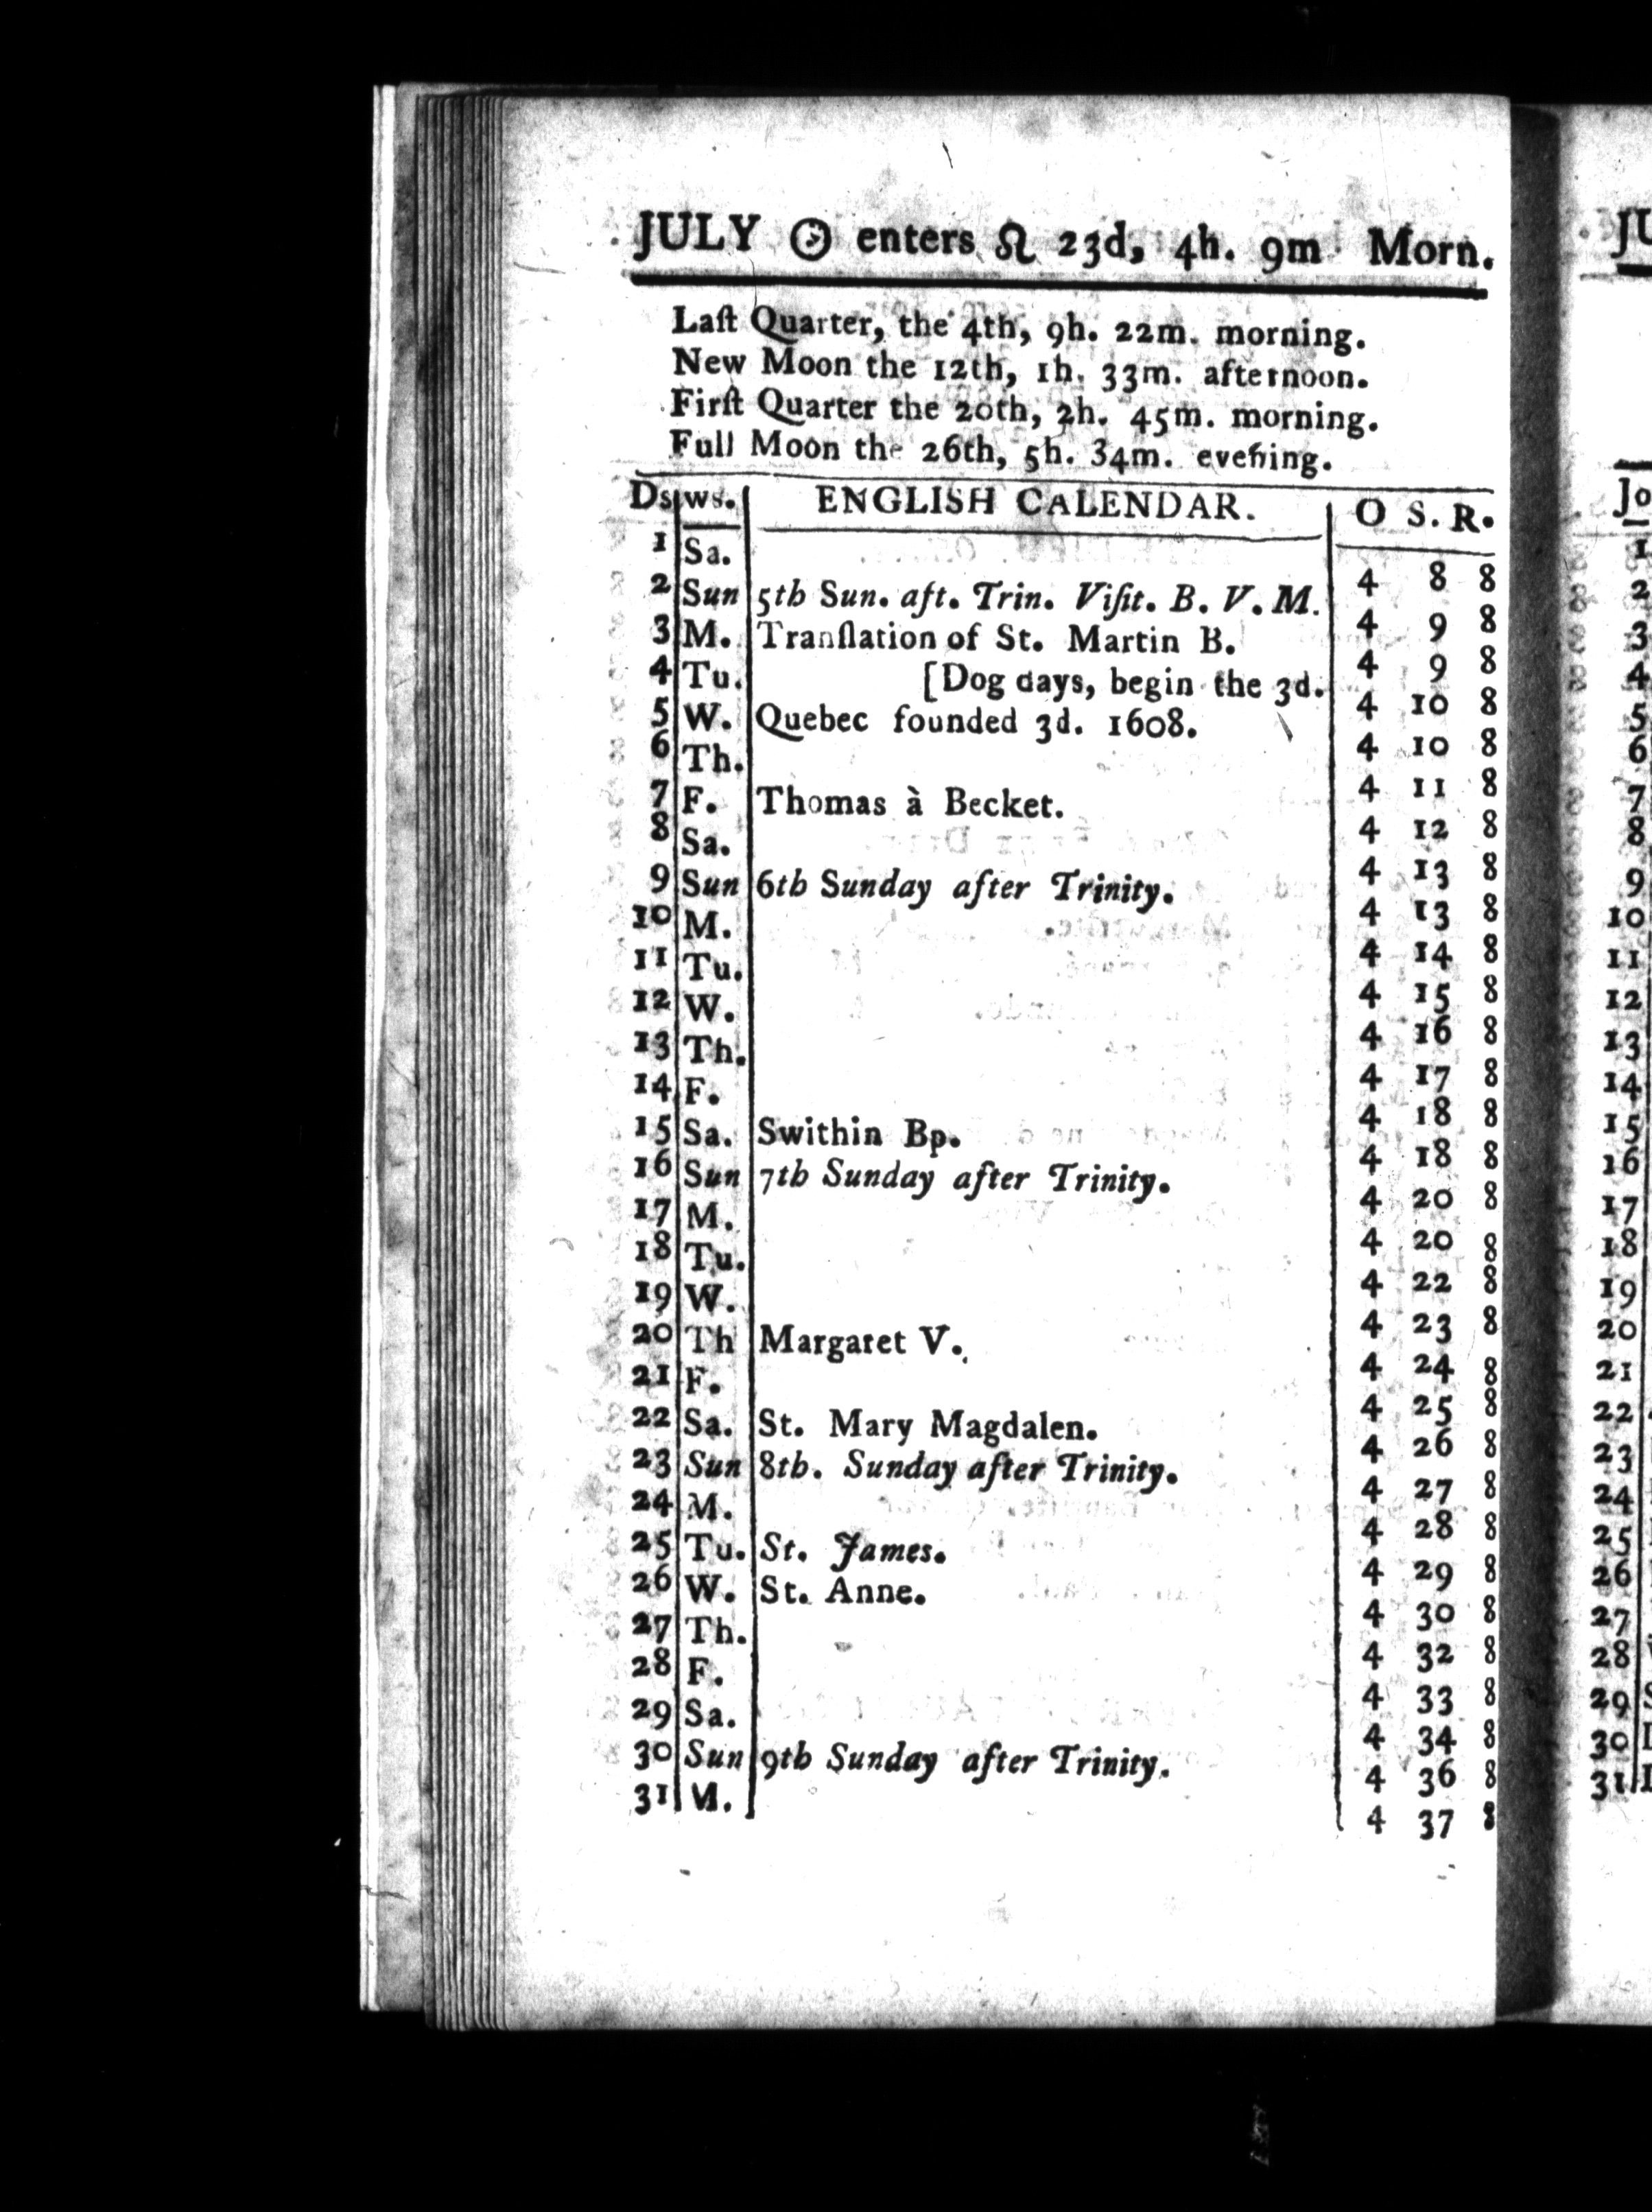 JULY ☉ enters ♌ 23d, 4h. 9m Morn.
Laſt Quarter, the 4th, 9h. 22m. morning.
New Moon the 12th, 1h. 33m. afternoon.
Firſt Quarter the 20th, 2h. 45m. morning.
Full Moon the 26th, 5h. 34m. evening.
Ds ws. ENGLISH CALENDAR. O S. R.
1 Sa. 4 8 8
2 Sun 5th Sun. aft. Trin. Viſit. B. V. M. 4 9 8
3 M. Tranſlation of St. Martin B. 4 9 8
4 Tu. [Dog days, begin the 3d. 4 10 8
5 W. Quebec founded 3d. 1608. 4 10 8
6 Th. 4 11 8
7 F. Thomas à Becket. 4 12 8
8 Sa. 4 13 8
9 Sun 6th Sunday after Trinity. 4 13 8
10 M. 4 14 8
11 Tu. 4 15 8
12 W. 4 16 8
13 Th. 4 17 8
14 F. 4 18 8
15 Sa. Swithin Bp. 4 18 8
16 Sun 7th Sunday after Trinity. 4 20 8
17 M. 4 20 8
18 Tu. 4 22 8
19 W. 4 23 8
20 Th Margaret V. 4 24 8
21 F. 4 25 8
22 Sa. St. Mary Magdalen. 4 26 8
23 Sun 8th. Sunday after Trinity. 4 27 8
24 M. 4 28 8
25 Tu. St. James. 4 29 8
26 W. St. Anne. 4 30 8
27 Th. 4 32 8
28 F. 4 33 8
29 Sa. 4 34 8
30 Sun 9th Sunday after Trinity. 4 36 8
31 M. 4 37 8
JU
Jo
1
2
3
4
5
6
7
8
9
10
11
12
13
14
15
16
17
18
19
20
21
22
23
24
25
26
27
28
29
30
31